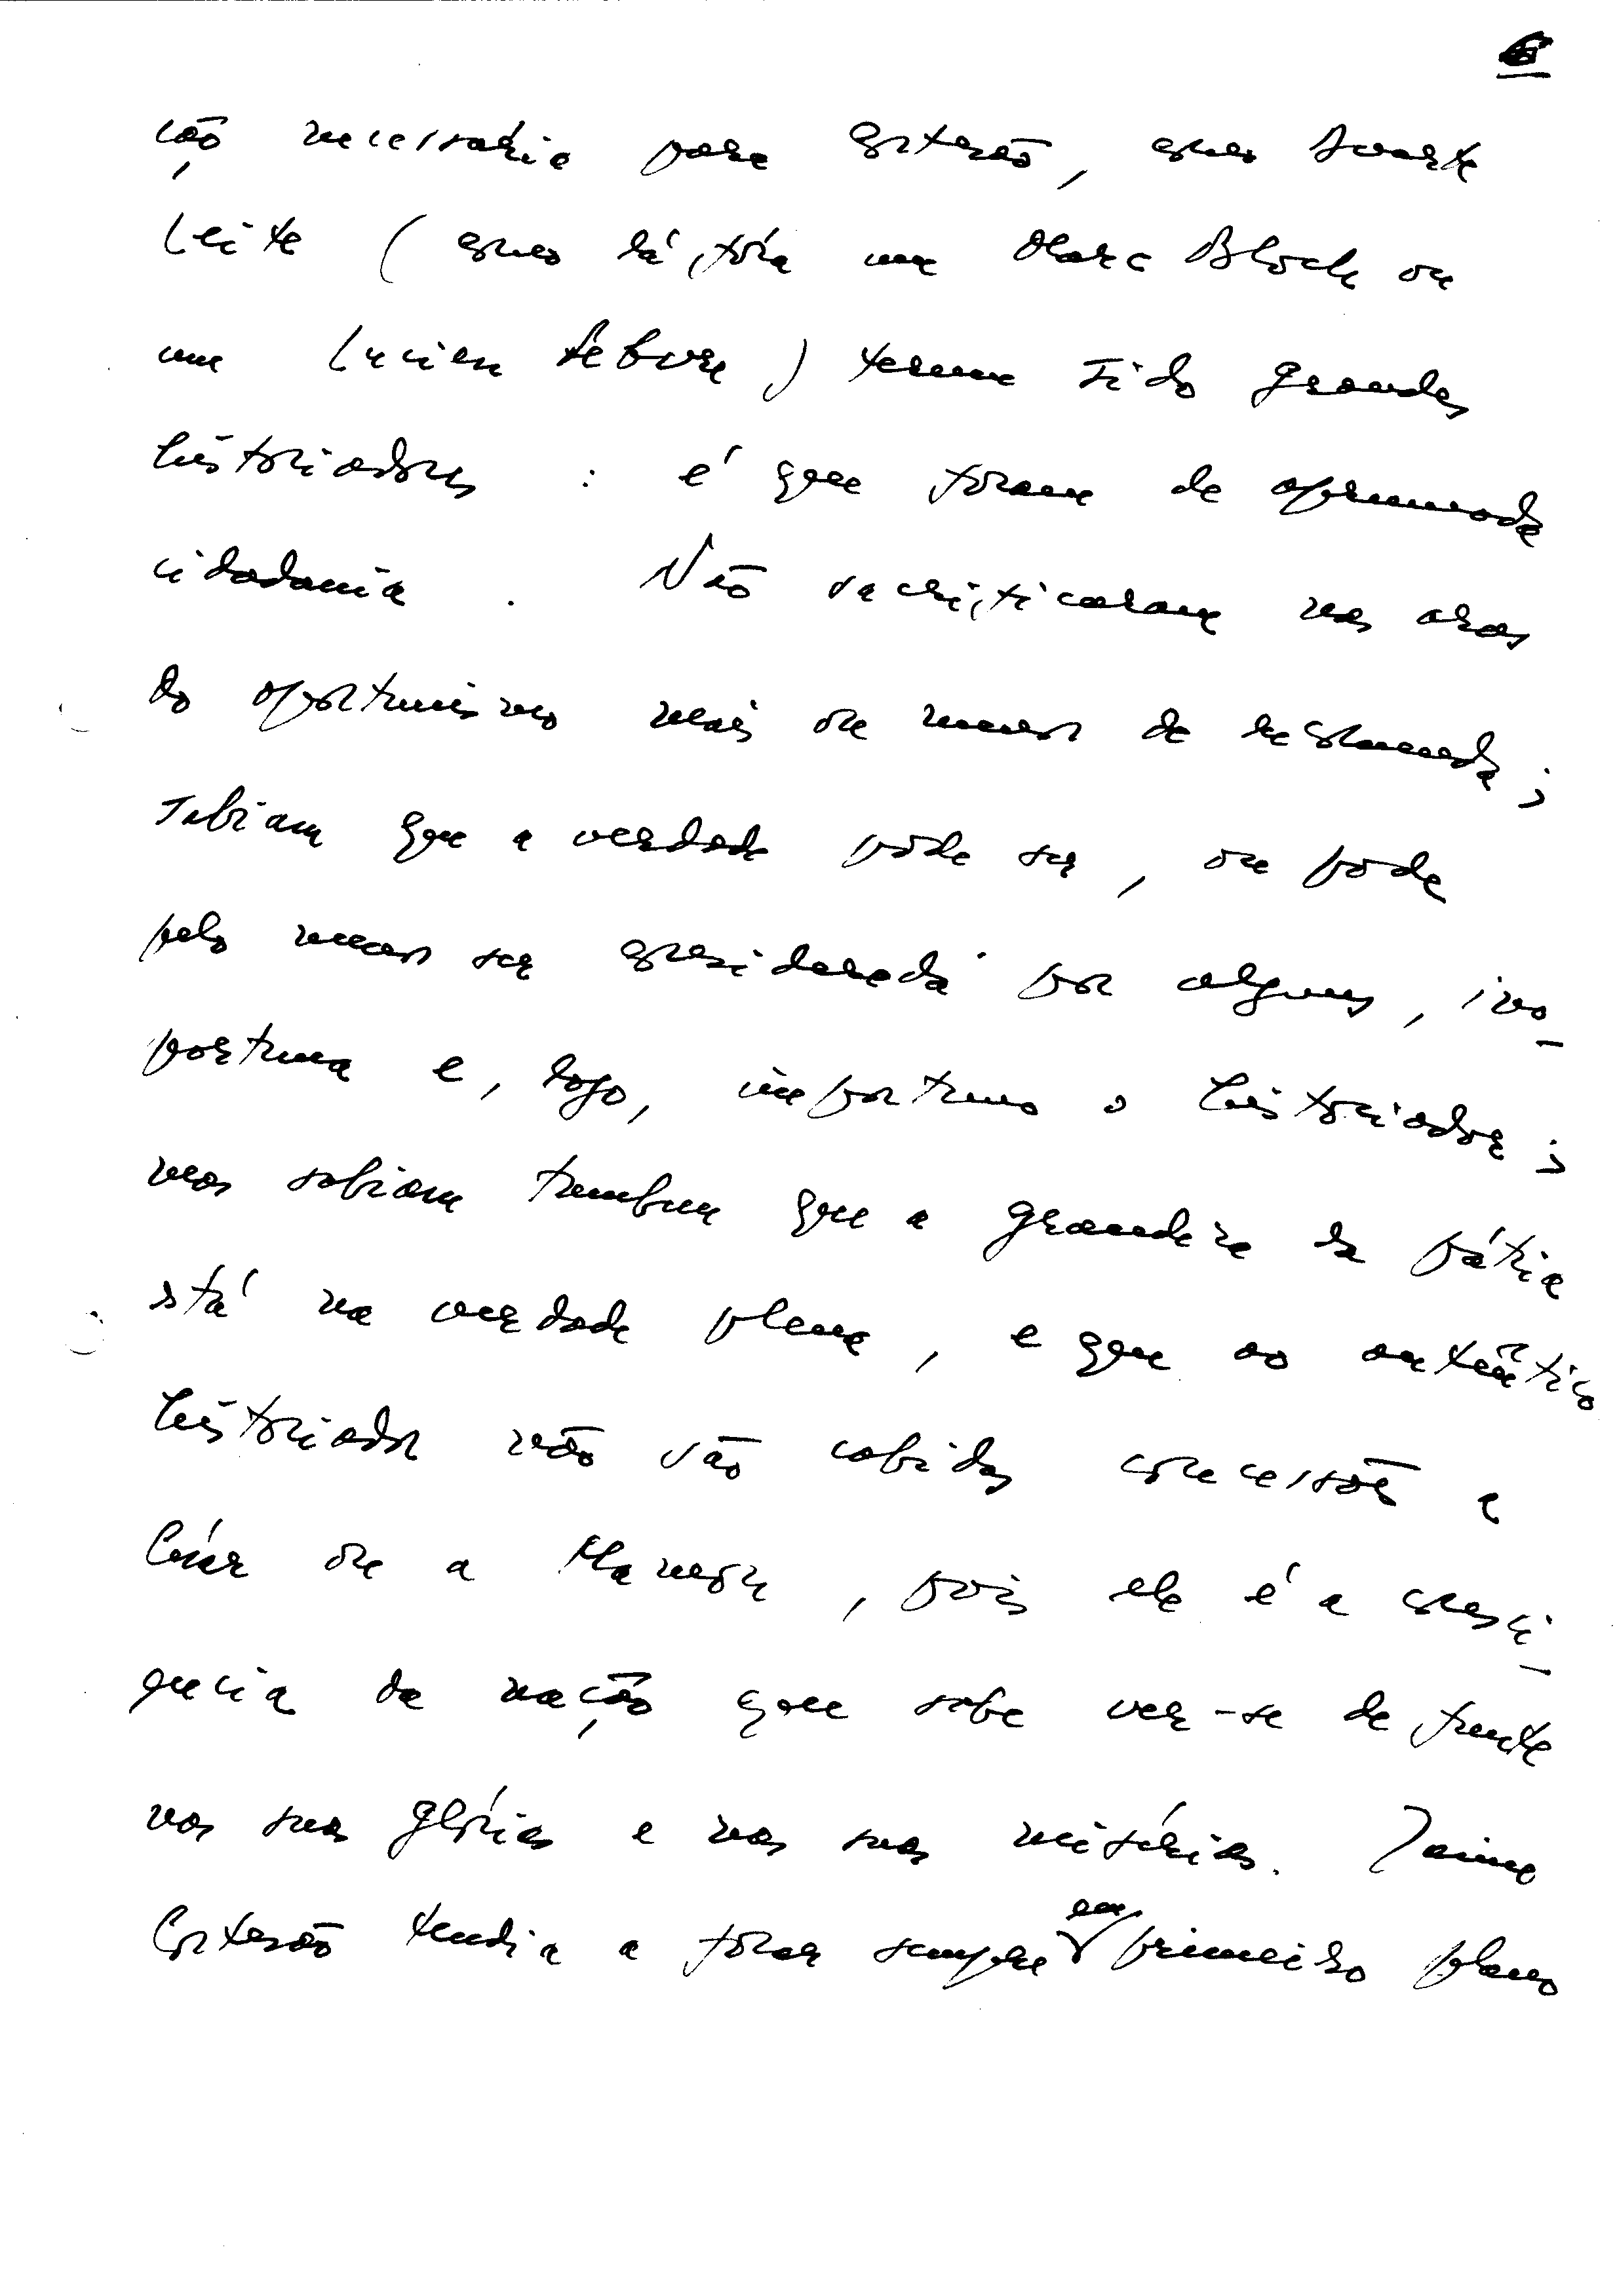 6
ção necessária para Cortesão, como Duarte
Leite (como lá fóra um Marc Bloch ou
um Lucien Febvre) terem sido grandes
historiadores : é que foram de aprumada
cidadania. Não sacrificaram nas aras
do oportunismo mais ou menos de encomenda;
sabiam que a verdade pode ser, ou pode
pelo menos ser considerada por alguns, ino-
portuna e, logo, importuno o historiador;
mas sabiam tambem que a grandeza da pátria
stá na verdade plena, e que ao autêntico
historiador não são cabidas concessões a
César ou a Mamon, pois ele é a consci-
encia da nação que sabe ver-se de frente
nas suas glórias e nas suas misérias. Jaime
Cortesão tendia a focar sempre em primeiro plano